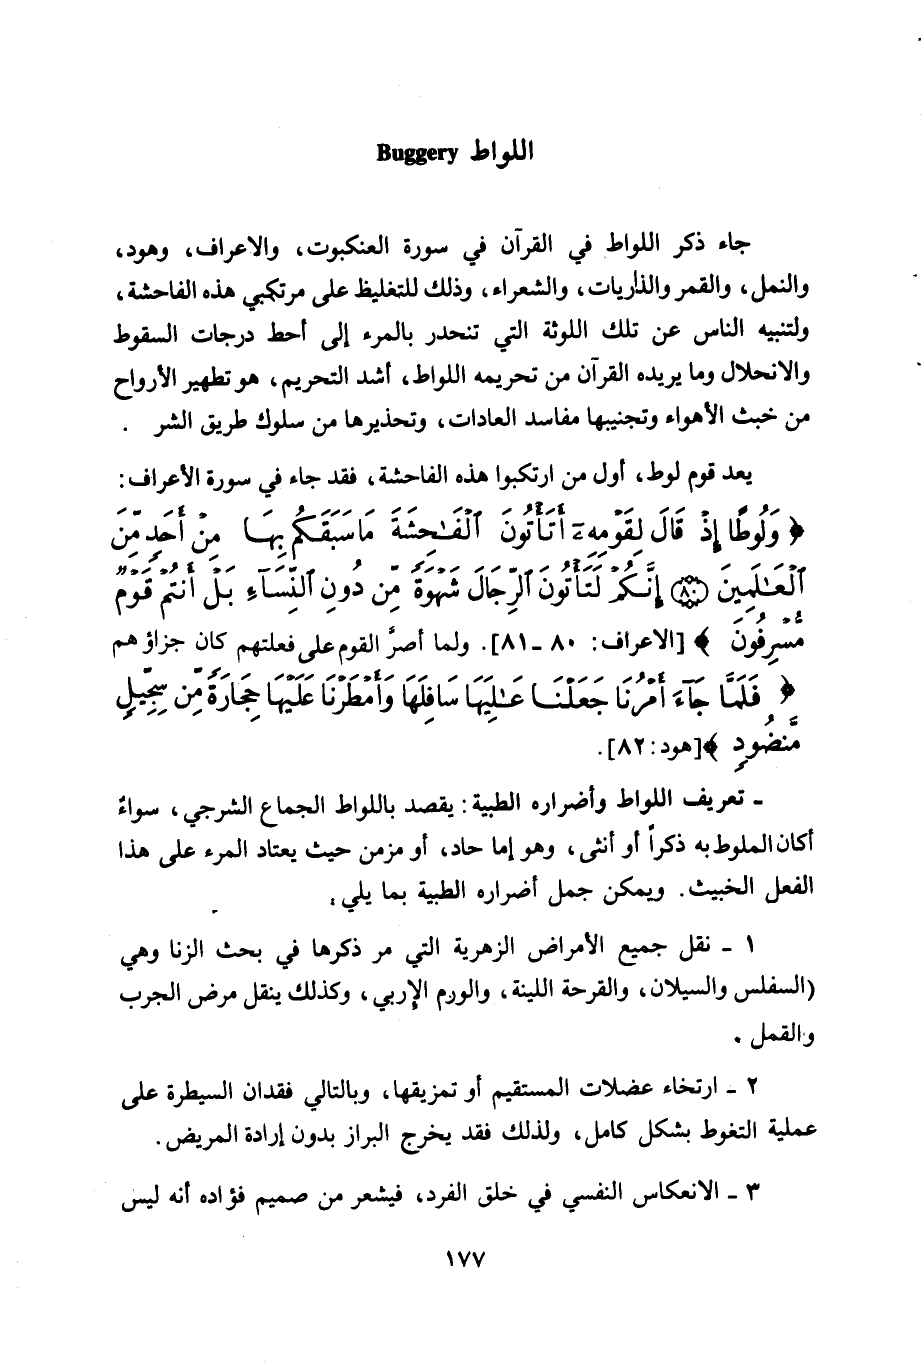 اللواط Buggery
جاء ذكر اللواط في القرآن في سورة العنكبوت، والاعراف، وهود،
والنمل، والقمر والذأريات، والشعراء، وذلك للتغليظ على مرتكبي هذه الفاحشة،
ولتنبيه الناس عن تلك اللوثة التي تنحدر بالمرء إلى أحط درجات السقوط
والانحلال وما يريده القرآن من تحريمه اللواط، أشد التحريم، هو تطهير الأرواح
من خبث الأهواء وتجنيبها مفاسد العادات، وتحذيرها من سلوك طريق الشر .
يعد قوم لوط، أول من ارتكبوا هذه الفاحشة، فقد جاء في سورة الأعراف:
﴿ وَلُوطًا إِذْ قَالَ لِقَوْمِهِۦٓ أَتَأْتُونَ ٱلْفَٰحِشَةَ مَا سَبَقَكُم بِهَا مِنْ أَحَدٍ مِّنَ
ٱلْعَٰلَمِينَ ۝٨٠ إِنَّكُمْ لَتَأْتُونَ ٱلرِّجَالَ شَهْوَةً مِّن دُونِ ٱلنِّسَآءِ بَلْ أَنتُمْ قَوْمٌ
مُّسْرِفُونَ ﴾ [الاعراف: ٨٠ ـ ٨١]. ولما أصرَّ القوم على فعلتهم كان جزاؤهم
﴿ فَلَمَّا جَآءَ أَمْرُنَا جَعَلْنَا عَٰلِيَهَا سَافِلَهَا وَأَمْطَرْنَا عَلَيْهَا حِجَارَةً مِّن سِجِّيلٍ
مَّنضُودٍ ﴾ [هود: ٨٢].
ـ تعريف اللواط وأضراره الطبية: يقصد باللواط الجماع الشرجي، سواءً
أكان الملوط به ذكراً أو أنثى، وهو إما حاد، أو مزمن حيث يعتاد المرء على هذا
الفعل الخبيث. ويمكن جمل أضراره الطبية بما يلي:
١ ـ نقل جميع الأمراض الزهرية التي مر ذكرها في بحث الزنا وهي
(السفلس والسيلان، والقرحة اللينة، والورم الإربي، وكذلك ينقل مرض الجرب
والقمل.
٢ ـ ارتخاء عضلات المستقيم أو تمزيقها، وبالتالي فقدان السيطرة على
عملية التغوط بشكل كامل، ولذلك فقد يخرج البراز بدون إرادة المريض.
٣ ـ الانعكاس النفسي في خلق الفرد، فيشعر من صميم فؤاده أنه ليس
١٧٧